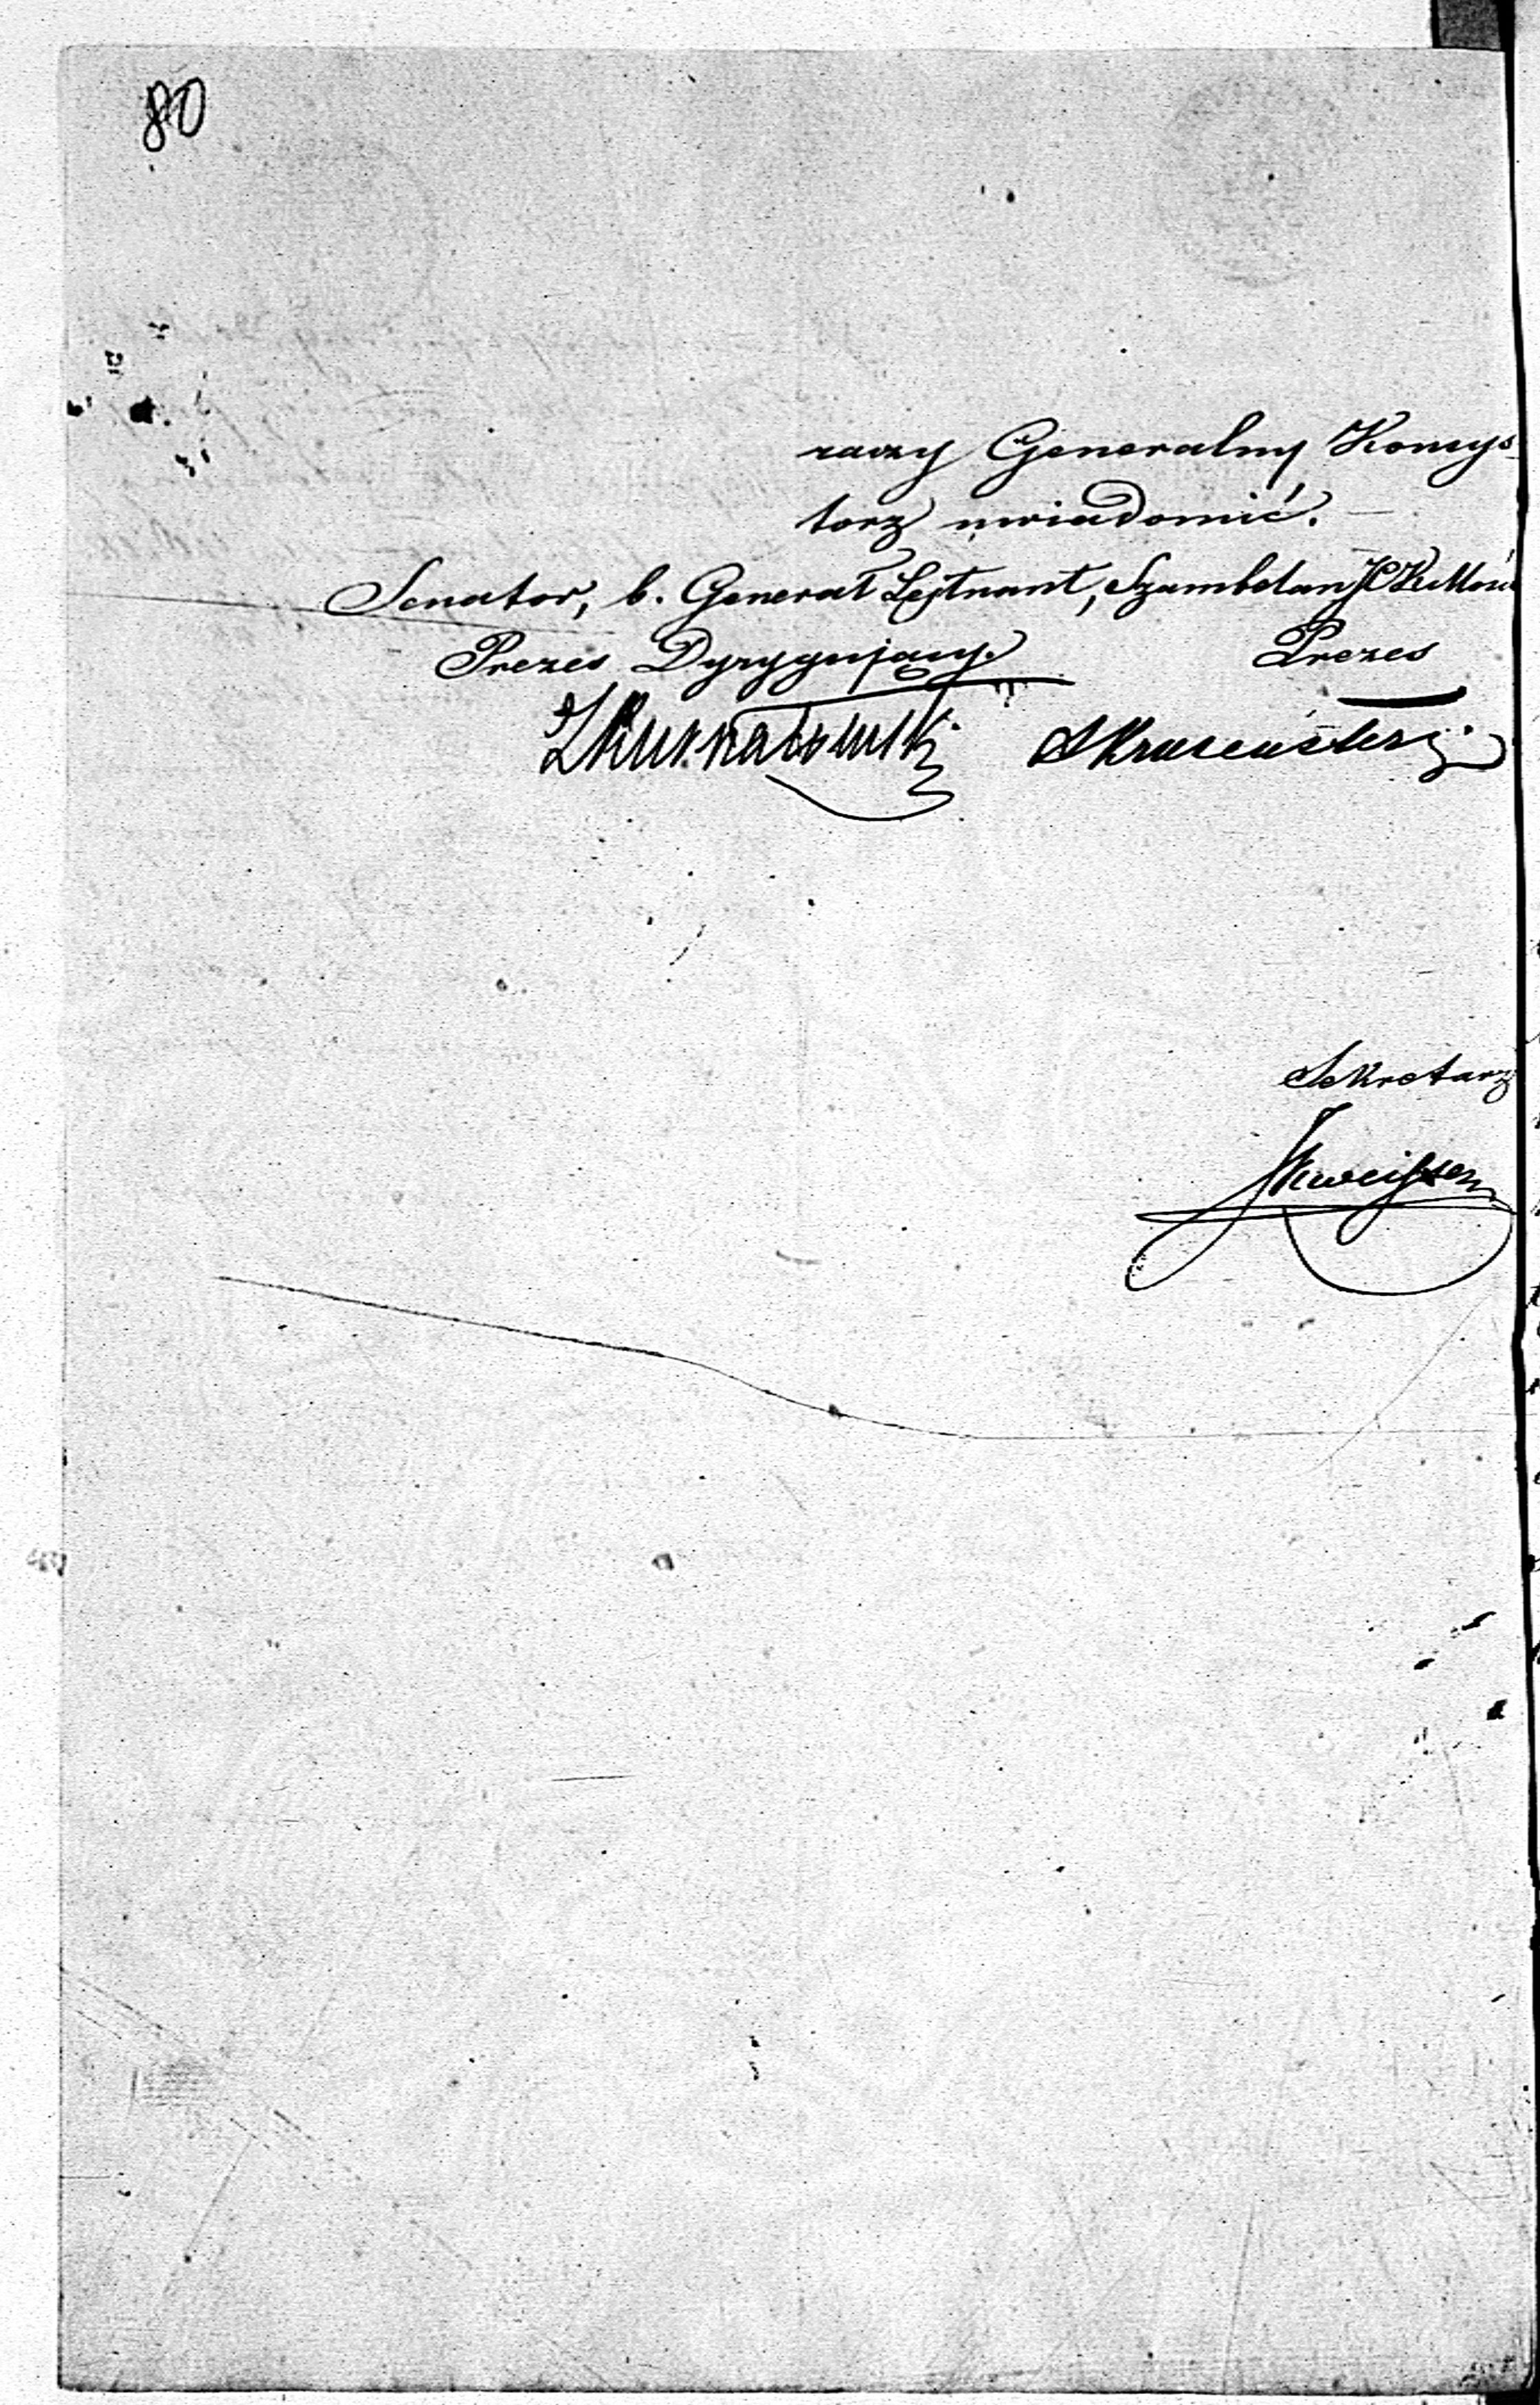 80
raczy Generalny Konsys-
torz uwiadomić.
Senator, b. Generał Lejtnant, Szambelan J C K Mości
Prezes Dyrygujący. Prezes
ZKurnatowski
Sekretarz